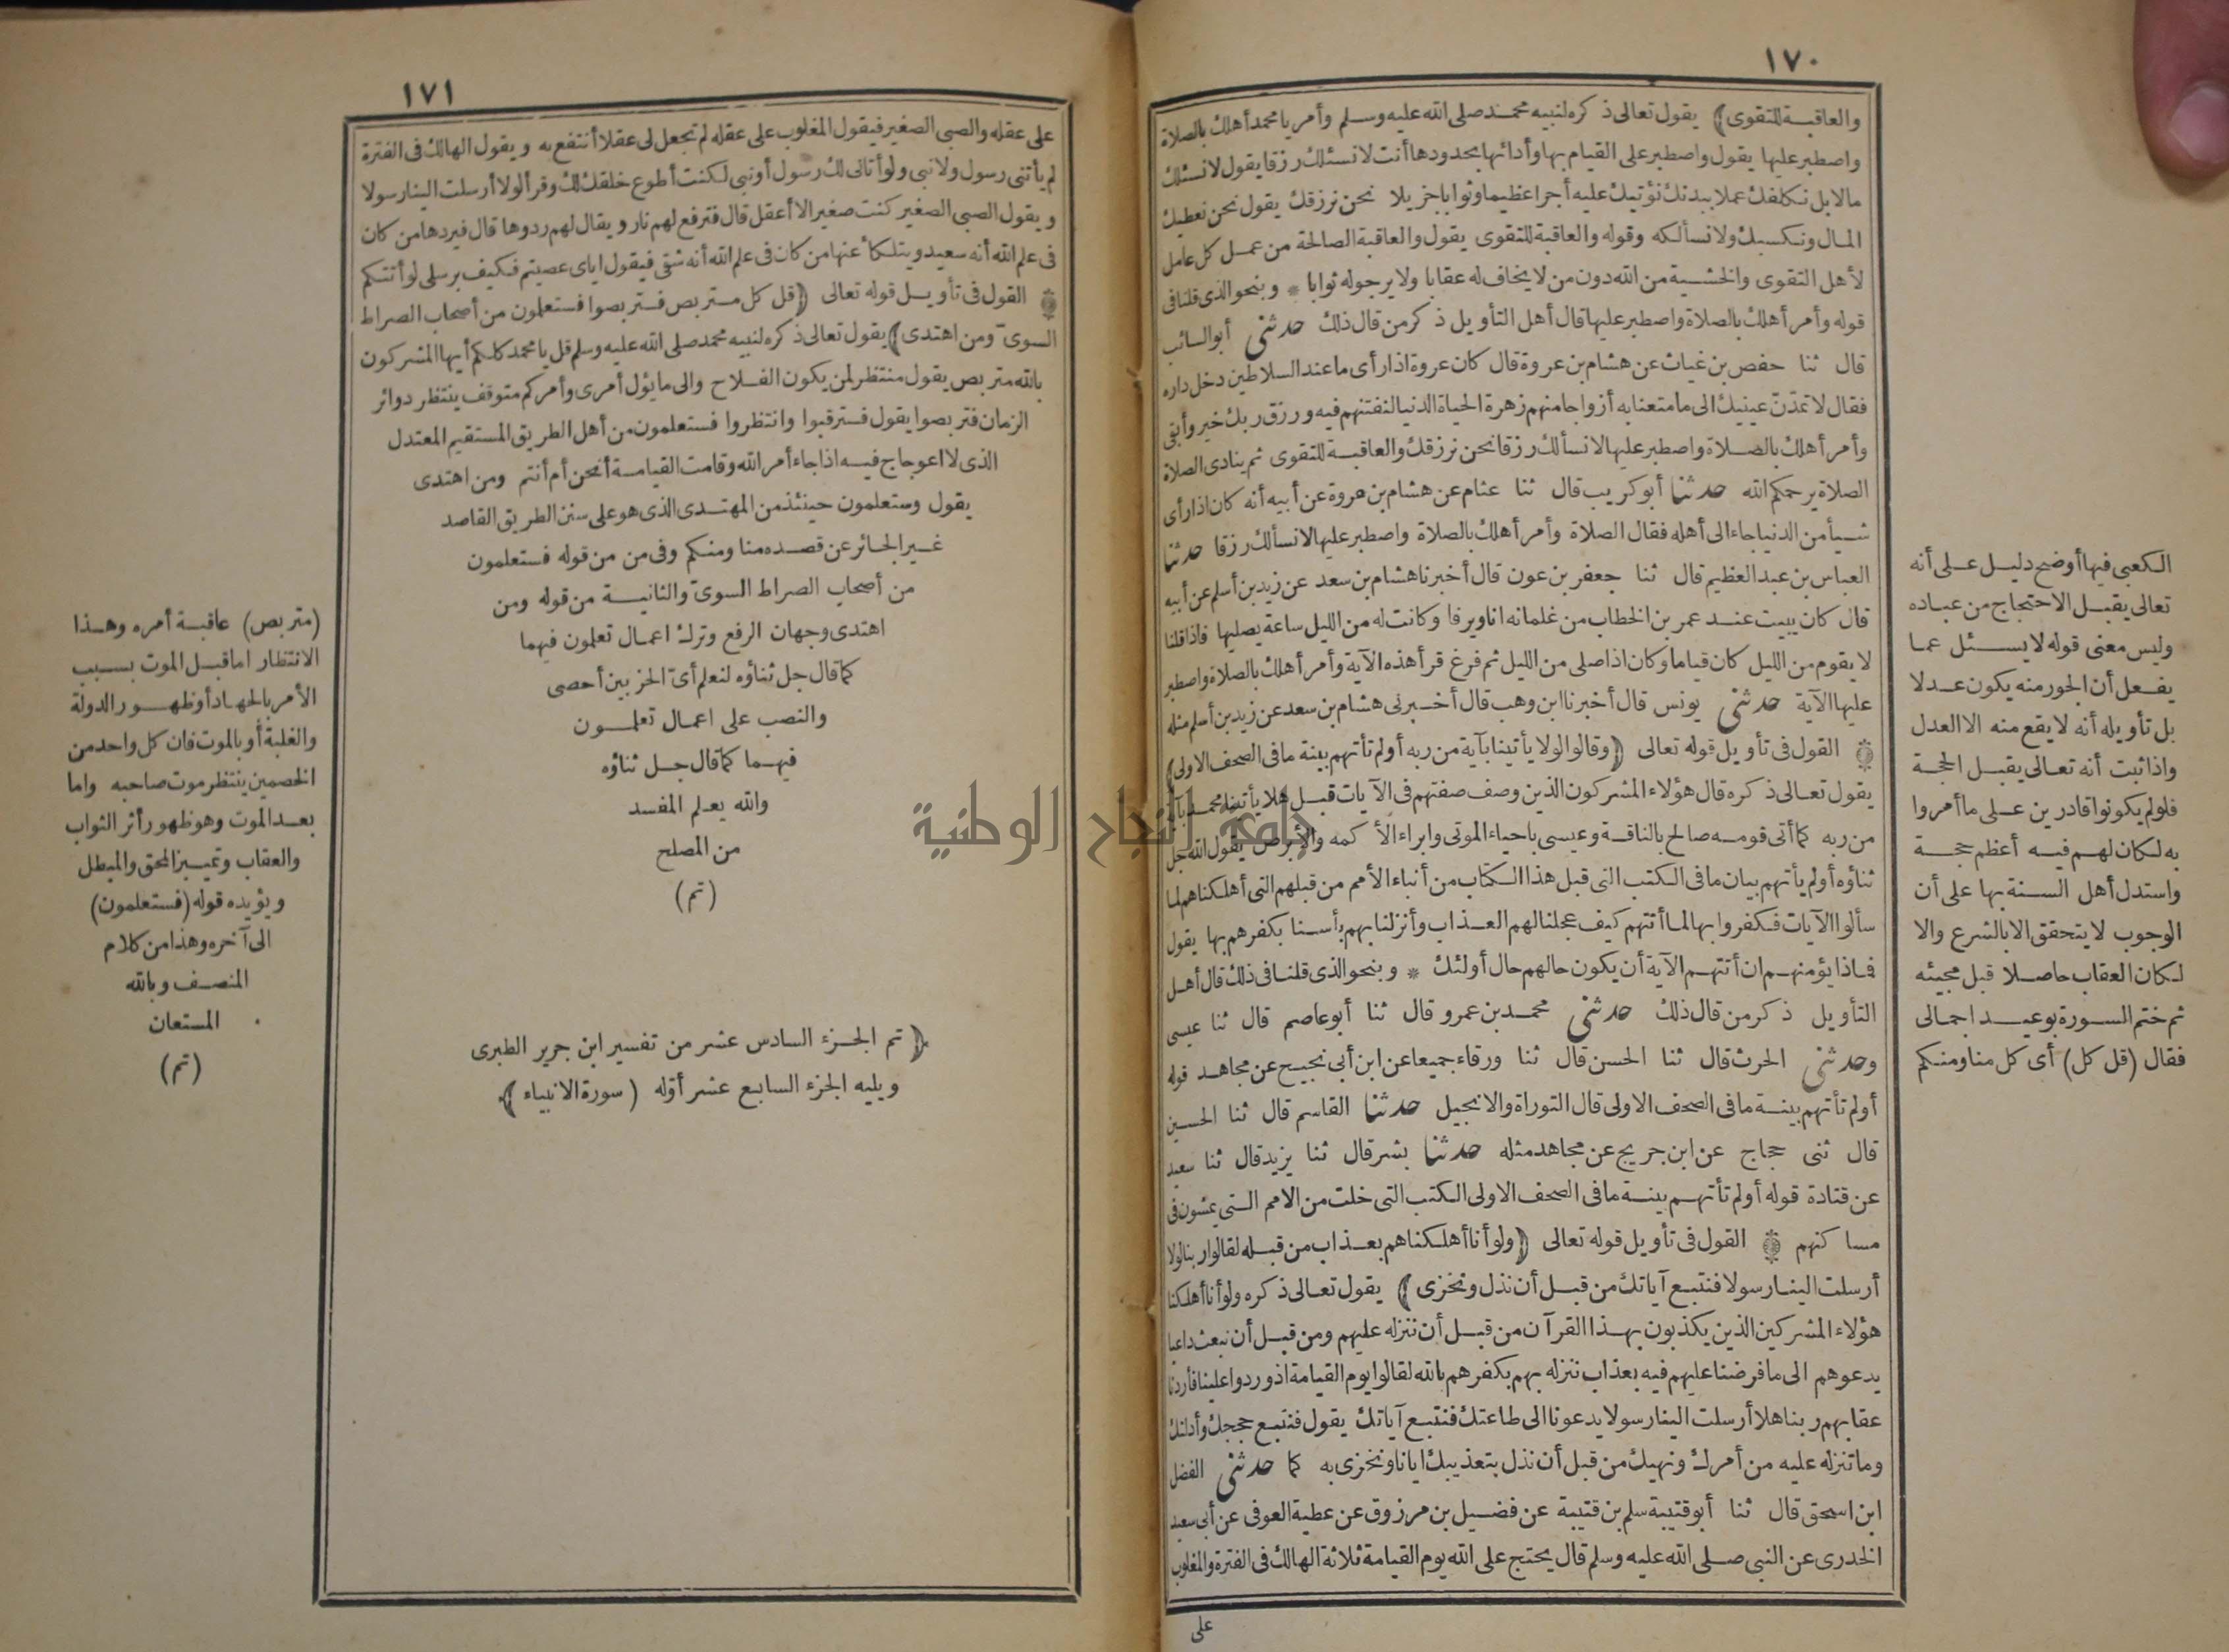 ١٧٠
والعاقبة للتقوى) يقول تعالى ذكره لنبيه محمد صلى الله عليه وسلم وأمر يا محمد أهلك بالصلاة
واصطبر عليها يقول واصطبر على القيام بها وأدائها بحدودها أنت لا نسئلك رزقا يقول لا نسئلك
مالا بل نكلفك عملا ببدنك نؤتيك عليه أجرا عظيما وثوابا جزيلا نحن نرزقك يقول نحن نعطيك
المال ونكسبك ولا نسألكه وقوله والعاقبة للتقوى يقول والعاقبة الصالحة من عمل كل عامل
لأهل التقوى والخشية من الله دون من لا يخاف له عقابا ولا يرجو له ثوابا * وبنحو الذى قلنا فى
قوله وأمر أهلك بالصلاة واصطبر عليها قال أهل التأويل ذكر من قال ذلك حدثنى أبو السائب
قال ثنا حفص بن غياث عن هشام بن عروة قال كان عروة اذا رأى ما عند السلاطين دخل داره
فقال لا تمدّنّ عينيك الى ما متعنا به أزواجا منهم زهرة الحياة الدنيا لنفتنهم فيه ورزق ربك خير وأبقى
وأمر أهلك بالصلاة واصطبر عليها لا نسألك رزقا نحن نرزقك والعاقبة للتقوى ثم ينادى الصلاة
الصلاة يرحمكم الله حدثنا أبو كريب قال ثنا عثام عن هشام بن عروة عن أبيه أنه كان اذا رأى
شيأ من الدنيا جاء الى أهله فقال الصلاة وأمر أهلك بالصلاة واصطبر عليها لا نسألك رزقا حدثنا
العباس بن عبد العظيم قال ثنا جعفر بن عون قال أخبرنا هشام بن سعد عن زيد بن أسلم عن أبيه
قال كان يبيت عند عمر بن الخطاب من غلمانه انا ويرفا وكانت له من الليل ساعة يصليها فاذا قلنا
لا يقوم من الليل كان قياما وكان اذا صلى من الليل ثم فرغ قرأ هذه الآية وأمر أهلك بالصلاة واصطبر
عليها الآية حدثنى يونس قال أخبرنا ابن وهب قال أخبرنى هشام بن سعد عن زيد بن أسلم مثله
القول فى تأويل قوله تعالى (وقالوا لولا يأتينا بآية من ربه أولم تأتهم بينة ما فى الصحف الاولى)
يقول تعالى ذكره قال هؤلاء المشركون الذين وصف صفتهم فى الآيات قبل هلا يأتينا محمد بآية
من ربه كما أتى قومه صالح بالناقة وعيسى باحياء الموتى وابراء الأكمه والأبرص يقول الله جل
ثناؤه أولم يأتهم بيان ما فى الكتب التى قبل هذا الكتاب من أنباء الأمم من قبلهم التى أهلكناهم لما
سألوا الآيات فكفروا بها لما أتتهم كيف عجلنا لهم العذاب وأنزلنا بهم بأسنا بكفرهم بها يقول
فاذا يؤمنهم ان أتتهم الآية أن يكون حالهم حال أولئك * وبنحو الذى قلنا فى ذلك قال أهل
التأويل ذكر من قال ذلك حدثنى محمد بن عمرو قال ثنا أبو عاصم قال ثنا عيسى
وحدثنى الحرث قال ثنا الحسن قال ثنا ورقاء جميعا عن ابن أبى نجيح عن مجاهد قوله
أولم تأتهم بينة ما فى الصحف الاولى قال التوراة والانجيل حدثنا القاسم قال ثنا الحسين
قال ثنى حجاج عن ابن جريج عن مجاهد مثله حدثنا بشر قال ثنا يزيد قال ثنا سعيد
عن قتادة قوله أولم تأتهم بينة ما فى الصحف الاولى الكتب التى خلت من الامم التى يمشون فى
مساكنهم القول فى تأويل قوله تعالى (ولو أنا أهلكناهم بعذاب من قبله لقالوا ربنا لولا
أرسلت الينا رسولا فنتبع آياتك من قبل أن نذل ونخزى) يقول تعالى ذكره ولو أنا أهلكنا
هؤلاء المشركين الذين يكذبون بهذا القرآن من قبل أن ننزله عليهم ومن قبل أن نبعث داعيا
يدعوهم الى ما فرضنا عليهم فيه بعذاب ننزله بهم بكفرهم بالله لقالوا يوم القيامة اذ وردوا علينا فأردنا
عقابهم ربنا هلا أرسلت الينا رسولا يدعونا الى طاعتك فنتبع آياتك يقول فنتبع حججك وأدلتك
وما تنزله عليه من أمرك ونهيك من قبل أن نذل بتعذيبك ايانا ونخزى به كما حدثنى الفضل
ابن اسحق قال ثنا أبو قتيبة سلم بن قتيبة عن فضيل بن مرزوق عن عطية العوفى عن أبى سعيد
الخدرى عن النبى صلى الله عليه وسلم قال يحتج على الله يوم القيامة ثلاثة الهالك فى الفترة والمغلوب
على
الكعبى فيها أوضح دليل على أنه
تعالى يقبل الاحتجاج من عباده
وليس معنى قوله لا يسئل عما
يفعل أن الجور منه يكون عدلا
بل تأويله أنه لا يقع منه الا العدل
واذا ثبت أنه تعالى يقبل الحجة
فلو لم يكونوا قادرين على ما أمروا
به لكان لهم فيه أعظم حجة
واستدل أهل السنة بها على أن
الوجوب لا يتحقق الا بالشرع والا
لكان العقاب حاصلا قبل مجيئه
ثم ختم السورة بوعيد اجمالى
فقال (قل كل) أى كل منا ومنكم
١٧١
على عقله والصبى الصغير فيقول المغلوب على عقله لم تجعل لى عقلا أنتفع به ويقول الهالك فى الفترة
لم يأتنى رسول ولا نبى ولو أتانى لك رسول أو نبى لكنت أطوع خلقك لك وقرأ لولا أرسلت الينا رسولا
ويقول الصبى الصغير كنت صغيرا لا أعقل قال فترفع لهم نار ويقال لهم ردوها قال فيردها من كان
فى علم الله أنه سعيد ويتلكأ عنها من كان فى علم الله أنه شقى فيقول اياى عصيتم فكيف برسلى لو أتتكم
القول فى تأويل قوله تعالى (قل كل متربص فتربصوا فستعلمون من أصحاب الصراط
السوىّ ومن اهتدى) يقول تعالى ذكره لنبيه محمد صلى الله عليه وسلم قل يا محمد كلكم أيها المشركون
بالله متربص يقول منتظر لمن يكون الفلاح والى ما يؤل أمرى وأمركم متوقف ينتظر دوائر
الزمان فتربصوا يقول فترقبوا وانتظروا فستعلمون من أهل الطريق المستقيم المعتدل
الذى لا اعوجاج فيه اذا جاء أمر الله وقامت القيامة أنحن أم أنتم ومن اهتدى
يقول وستعلمون حينئذ من المهتدى الذى هو على سنن الطريق القاصد
غير الجائر عن قصده منا ومنكم وفى من من قوله فستعلمون
من أصحاب الصراط السوىّ والثانية من قوله ومن
اهتدى وجهان الرفع وترك اعمال تعلمون فيهما
كما قال جل ثناؤه لنعلم أىّ الحزبين أحصى
والنصب على اعمال تعلمون
فيهما كما قال جل ثناؤه
والله يعلم المفسد
من المصلح
(تم)
(تم الجزء السادس عشر من تفسير ابن جرير الطبرى
ويليه الجزء السابع عشر أوّله (سورة الانبياء)
(متربص) عاقبة أمره وهذا
الانتظار اما قبل الموت بسبب
الأمر بالجهاد أو ظهور الدولة
والغلبة أو بالموت فان كل واحد من
الخصمين ينتظر موت صاحبه واما
بعد الموت وهو ظهور أثر الثواب
والعقاب وتمييز المحق والمبطل
ويؤيده قوله (فستعلمون)
الى آخره وهذا من كلام
المنصف وبالله
المستعان
(تم)
جامعة النجاح الوطنية